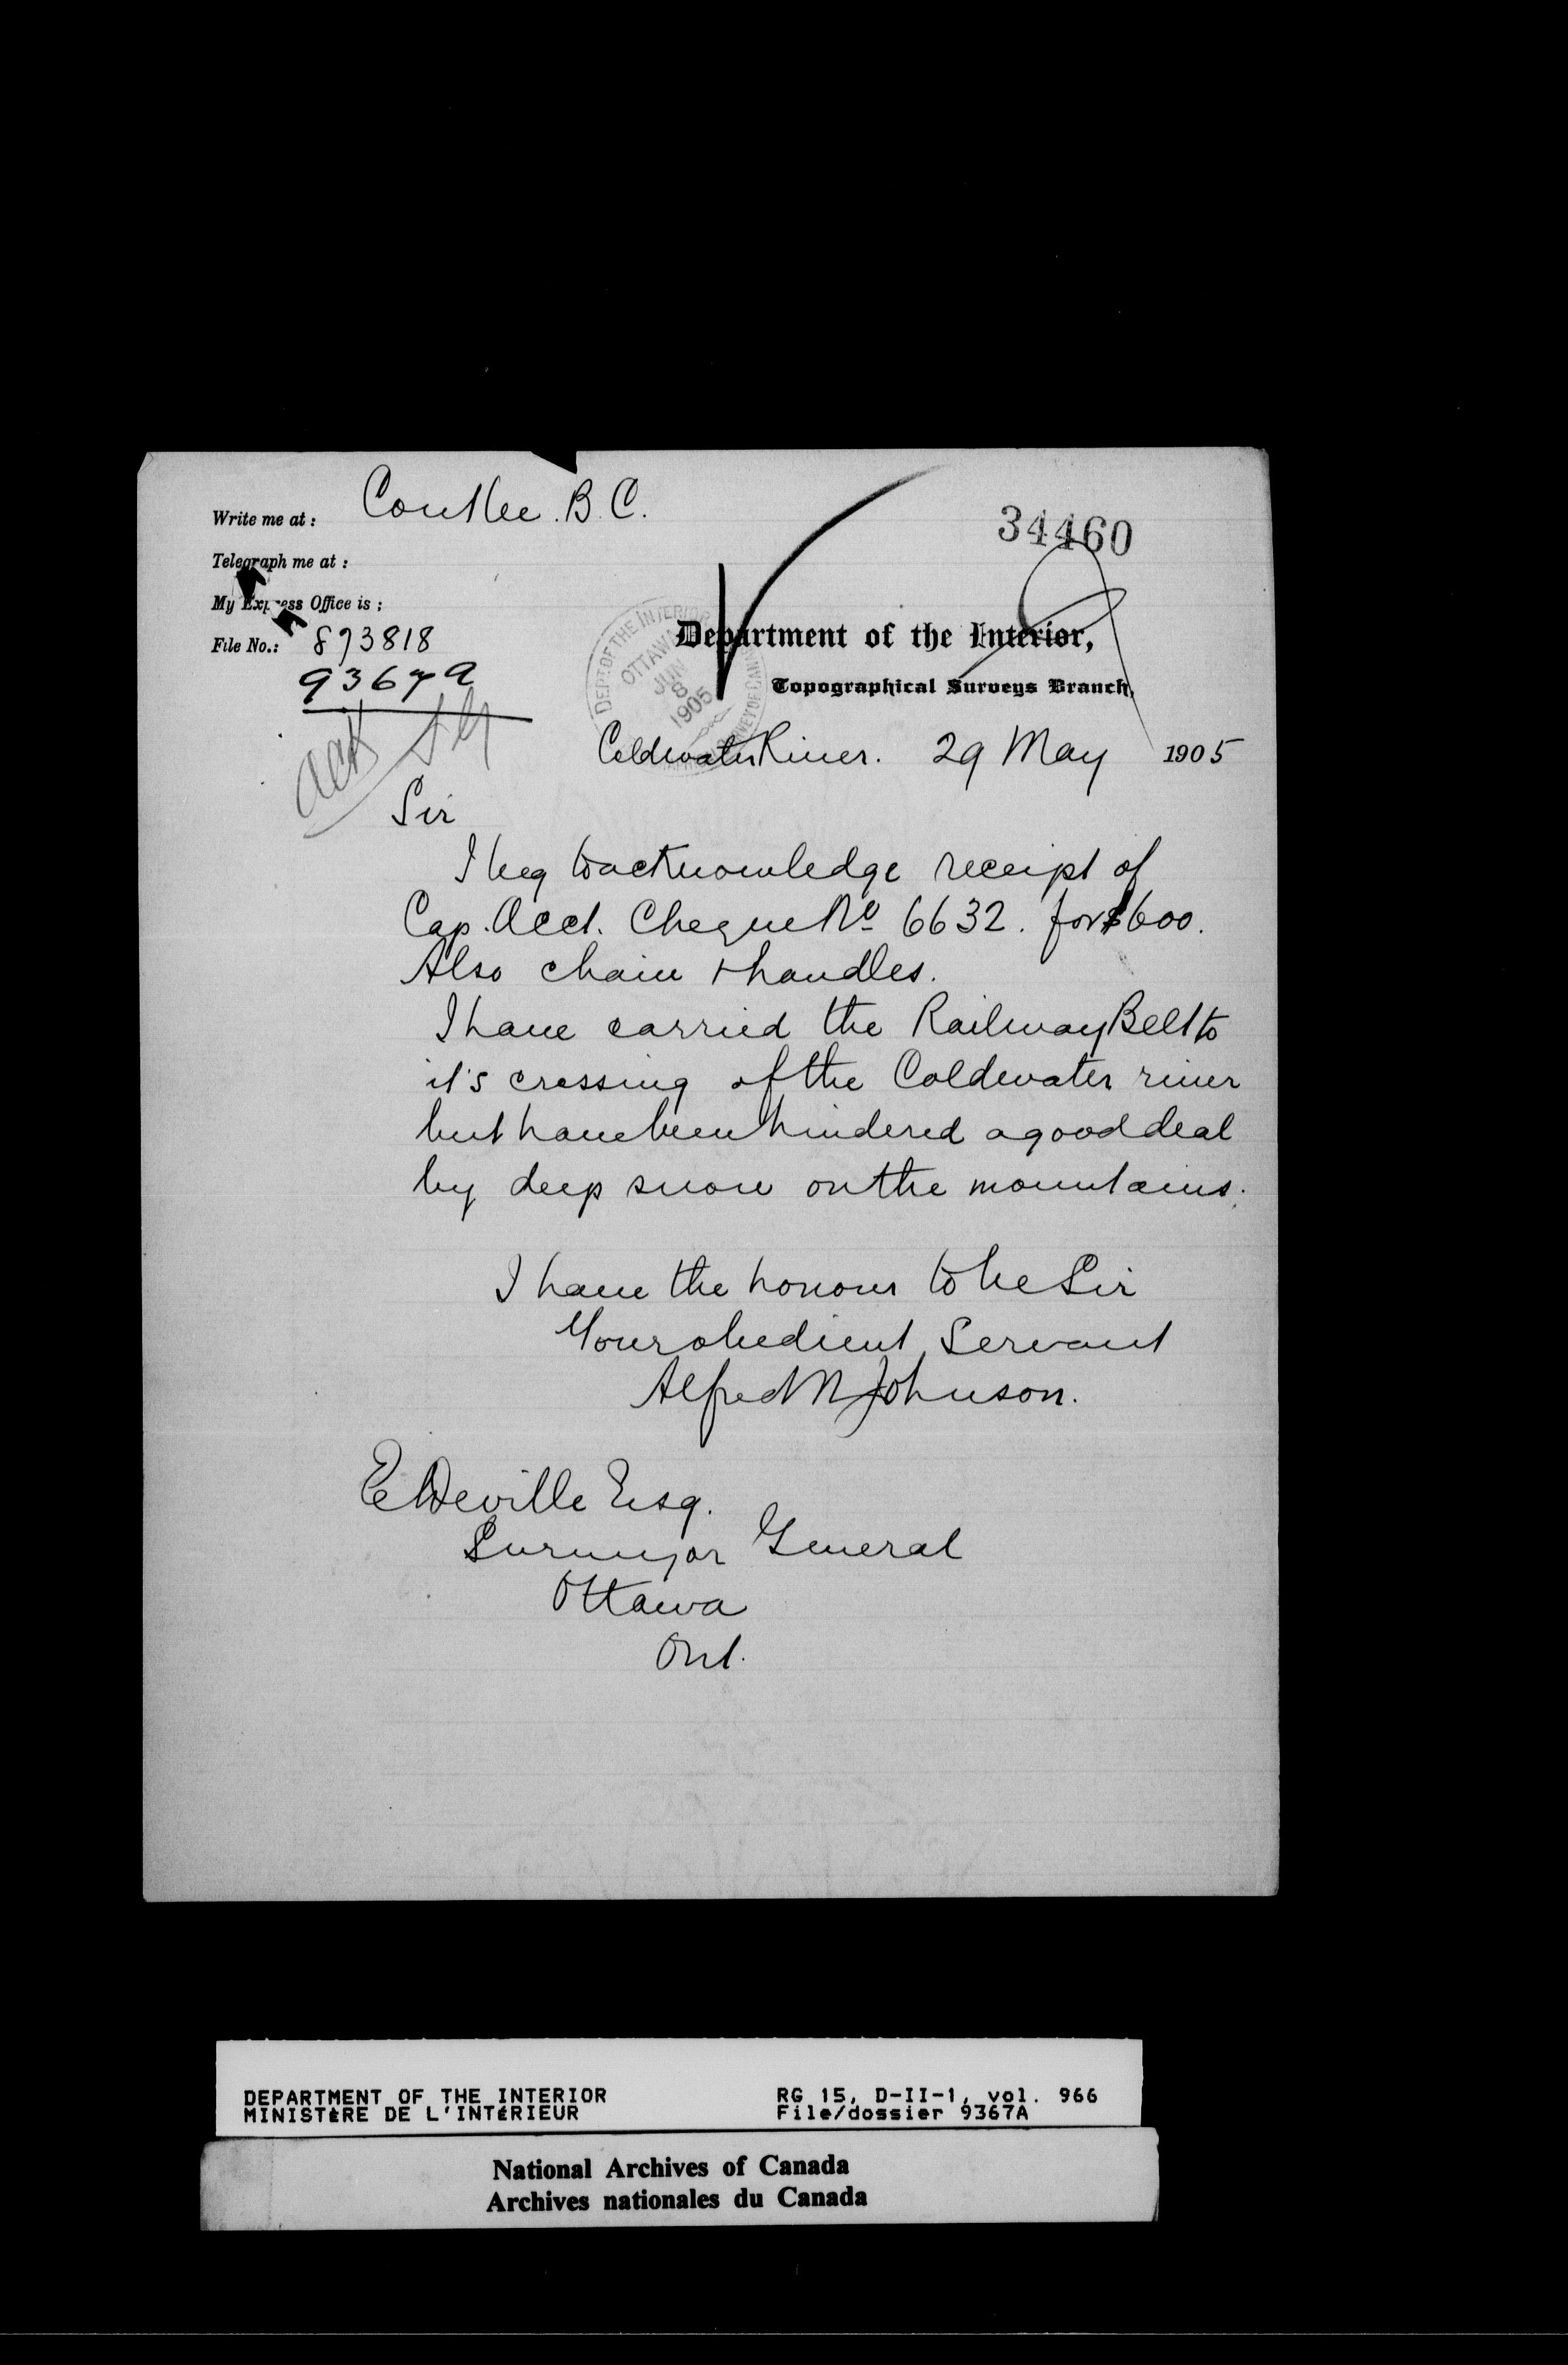 Write me at : Coutlee. B.C.
34460
Telegraph me at :
My Express Office is :
File No.: 873818
9367a
DEPT OF THE INTERIOR
OTTAWA
JUN
8
1905
Department of the Interior,
Topographical Surveys Branch,
Coldwater River. 29 May 1905
Ack
Sir
I beg to acknowledge receipt of
Cap. Acct. Cheque No 6632. for $600.
Also chain + handles.
I have carried the Railway Belt to
it's crossing of the Coldwater river
but have been hindered a good deal
by deep snow on the mountains.
I have the honour to be Sir
Your obedient Servant
Alfred W Johnson.
E Deville Esq.
Surveyor General
Ottawa
Ont.
DEPARTMENT OF THE INTERIOR RG 15, D-II-1, vol. 966
MINISTÈRE DE L'INTÉRIEUR File/dossier 9367A
National Archives of Canada
Archives nationales du Canada